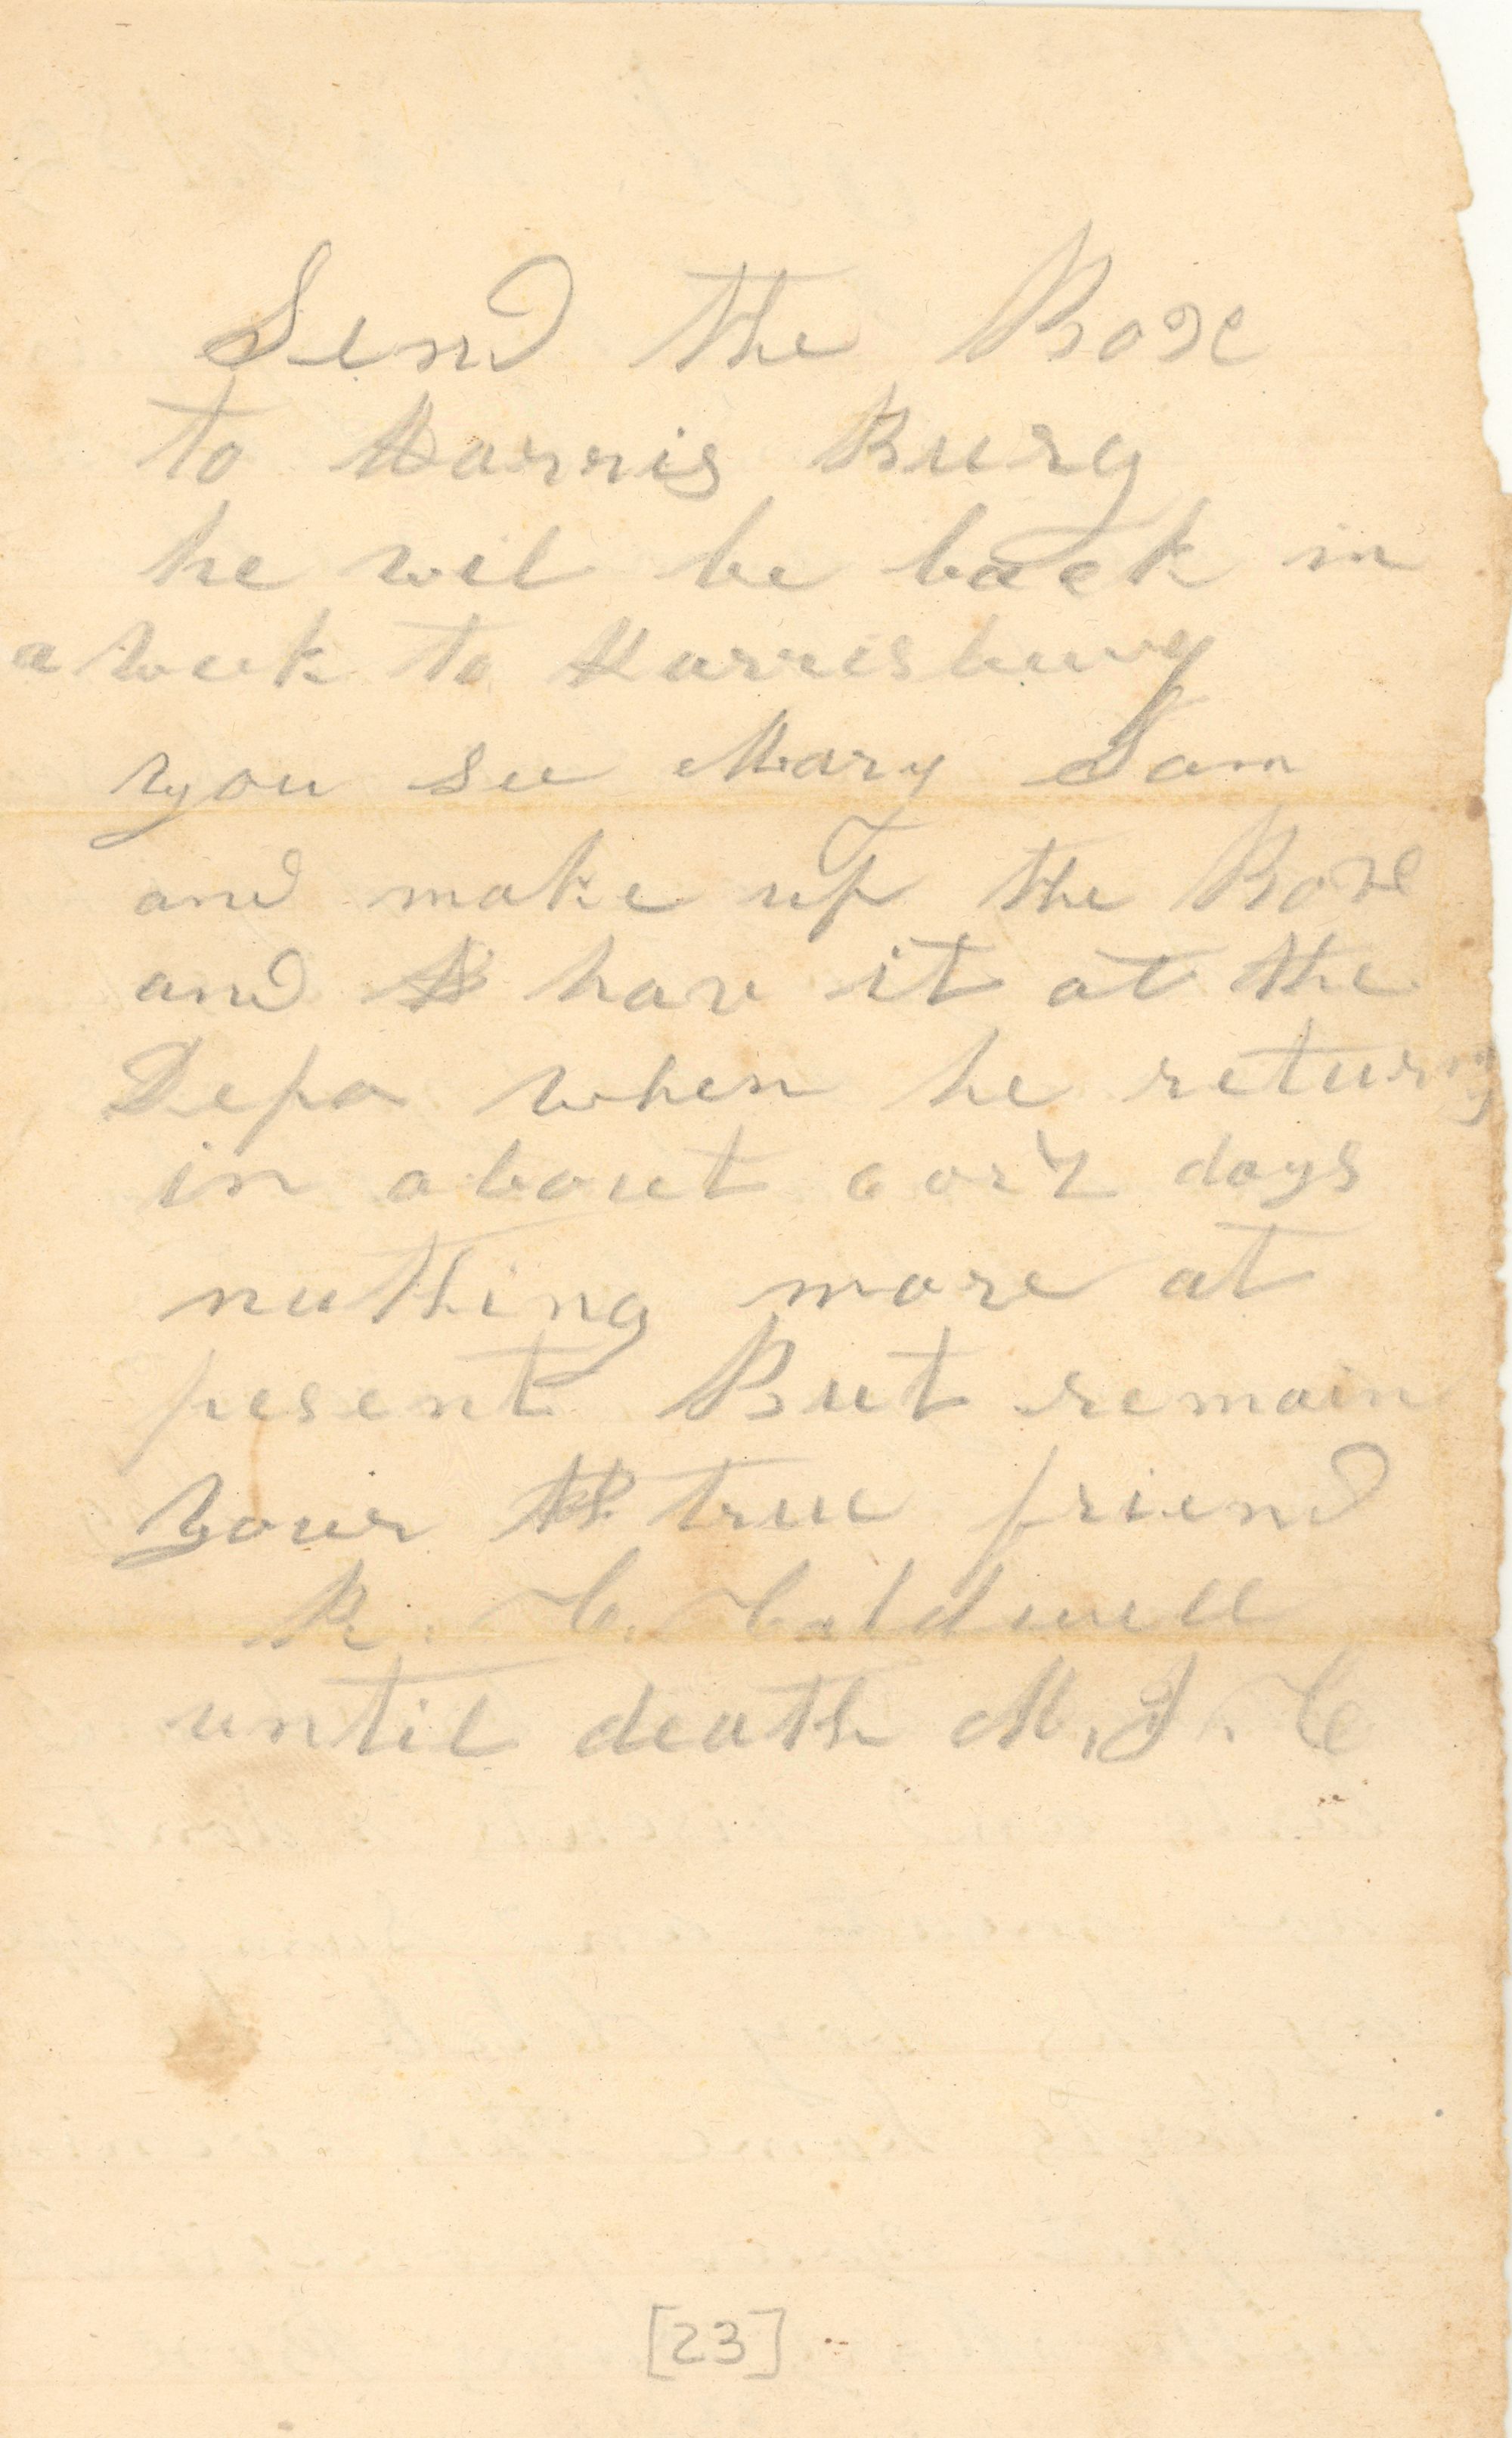 Send the Boxe
to Harris Burg
he wil be back in
a week to Harrisburg
you see Mary Sam
and make up the Boxe
and hav it at the
Depo when he returns
in about 6 or 7 days
nuthing more at
pesent But remain
your true friend
R. C. Caldwell
until death M. J. C
[23]